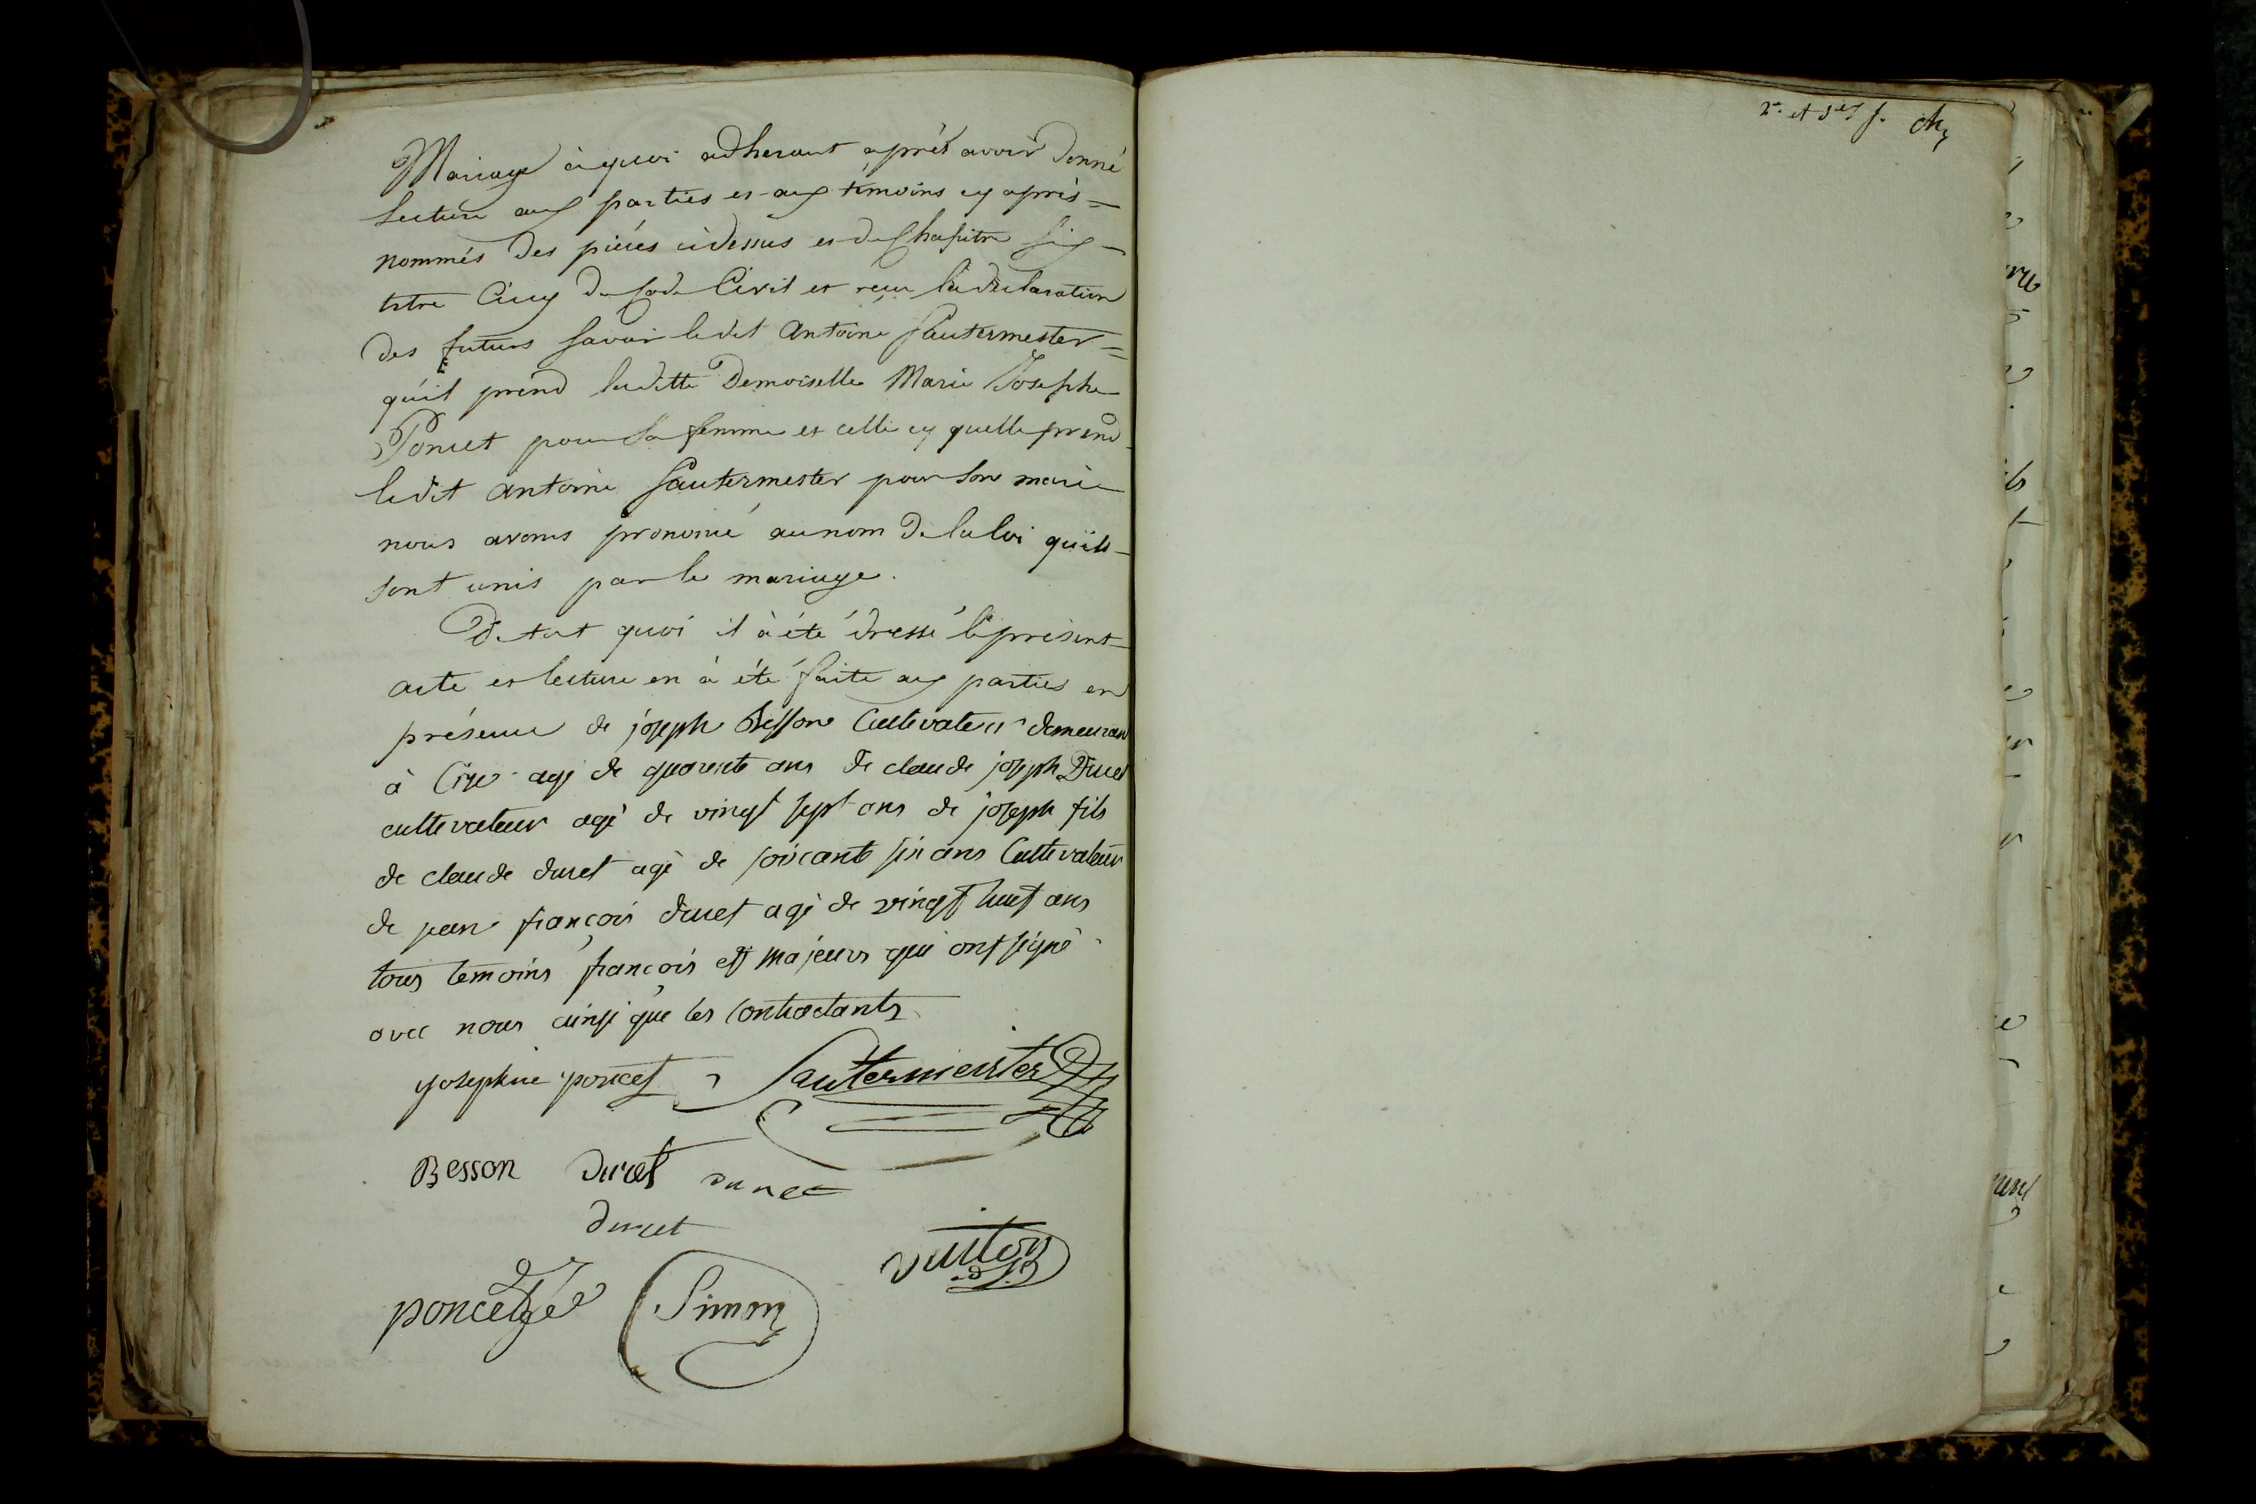 Mariage à quoi adherant aprés avoir donné
lecture aux parties et aux témoins cy après =
nommés des pieces cidessus et du Chapitre six
titre Cinq du Code Civil et reçu la declaration
des futurs savoir ledit Antoine Sautermester =
qu'il prend laditte Demoiselle Marie Josephe
Poncet pour sa femme et celle cy quelle prend
ledit Antoine Sautermester pour son marie
nous avons prononcé au nom de la loi qu'ils
sont unis par le mariage.
De tout quoi il à été dressé le présent
acte et lecture en à été faite aux parties en
présence de joseph Besson Cultivateur demeurant
à agé de quarente ans de claude joseph Duret
cultivateur agé de vingt sept ans de joseph fils
de claude duret agé de soixante six ans Cultivateur
de jean françois duret agé de vingt huit ans
tous temoins françois et majeurs qui ont signé
avec nous ainsi que les contractants
josephine poncet Sautermeister
Besson Duret Duret
duret
vuiton
poncet Simon
2e. et f.